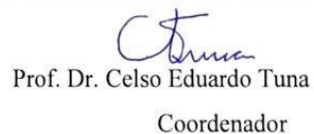 Prof. Dr. Celso Eduardo Tuna
Coordenador